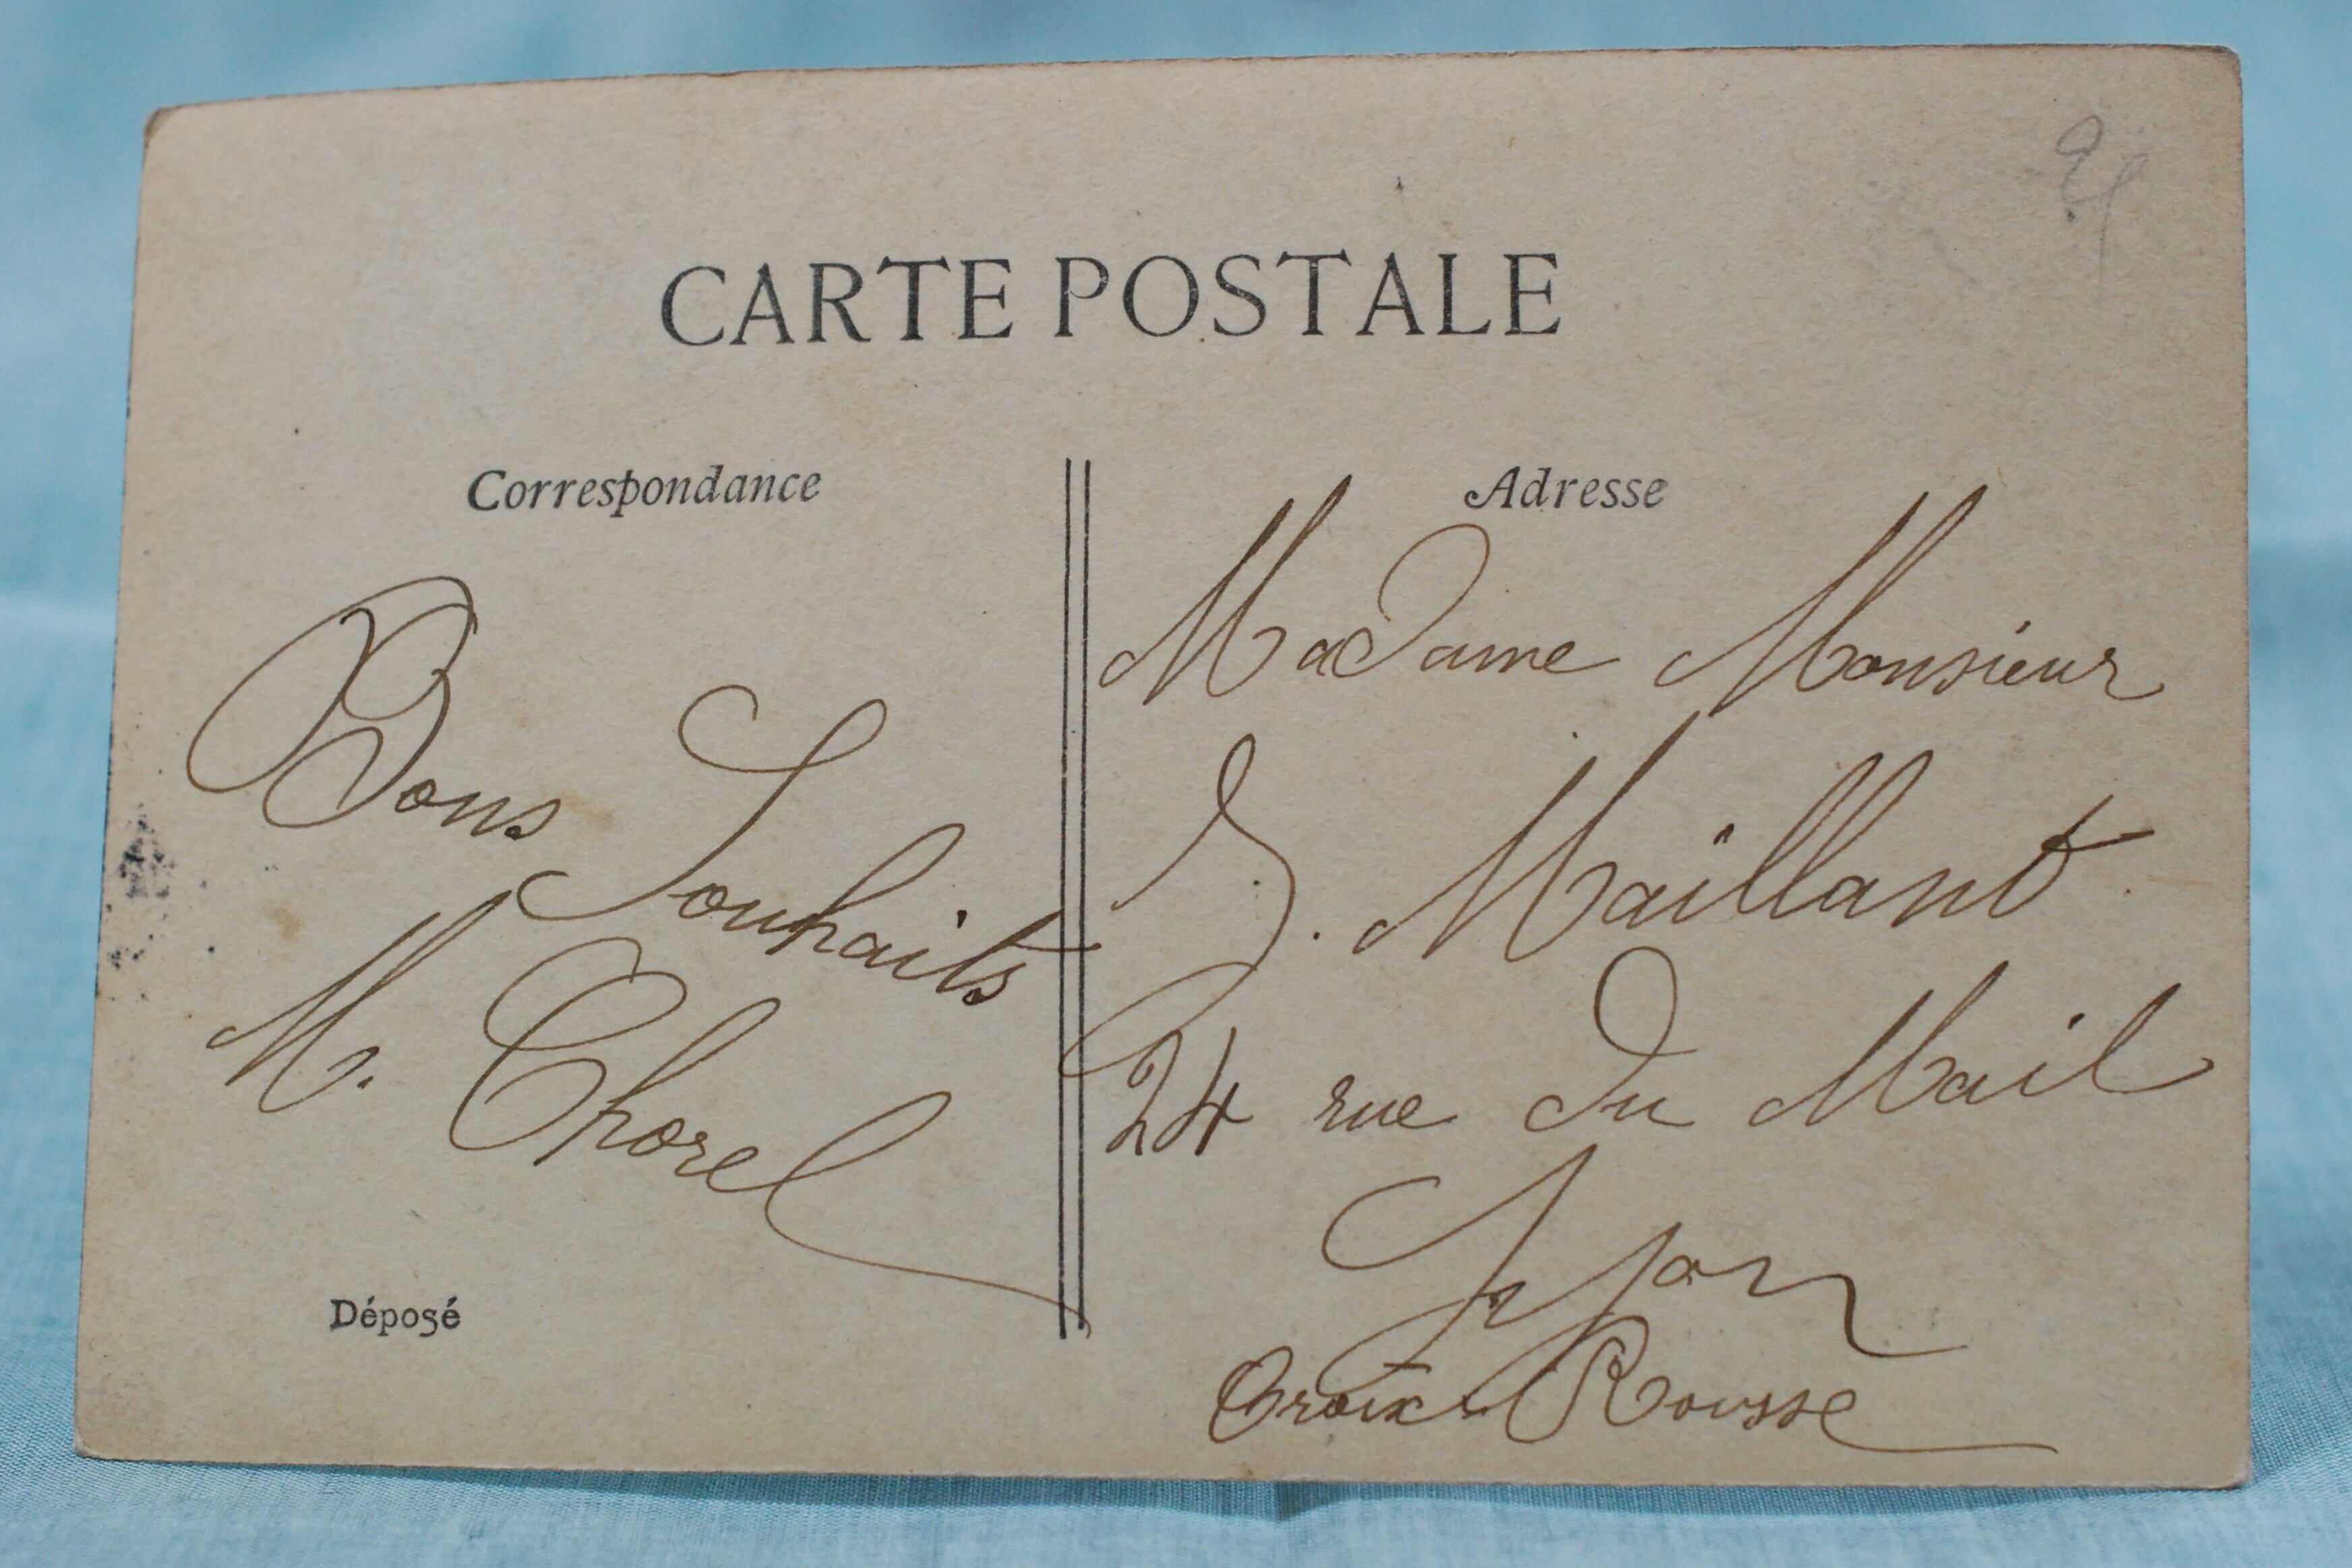 CARTE POSTALE
Correspondance
Bons Souhaits
M. Chorel
Déposé
Adresse
Madame Monsieur
Maillant
24 rue du Mail
Lyon
Croix-Rousse